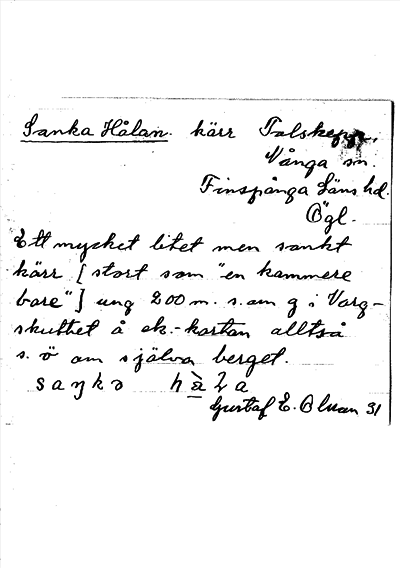 Sanka Hålan. kärr Talskepp.
Vånga sn
Finspånga Läns hd.
Ögl.
Ett mycket litet men sankt
kärr [stort som "en kammere
bare"] ung 200 m. s. om g i Varg-
skuttet å ek.-kartan alltså
s. ö om själva berget.
saŋkə
Gustaf E. Blman 31